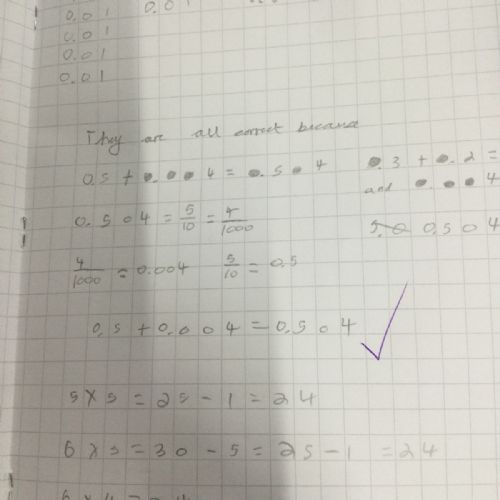 0.01 0.01
0.01
0.01
0.01
They are all correct because
0.5 + 0.004 = 0.504
0.3 + 0.2 =
and 0.004
0.504 = 5/10 = 4/1000
0.504
4/1000 = 0.004 5/10 = 0.5
0.5 + 0.004 = 0.504
5 x 5 = 25 - 1 = 24
6 x 5 = 30 - 5 = 25 - 1 = 24